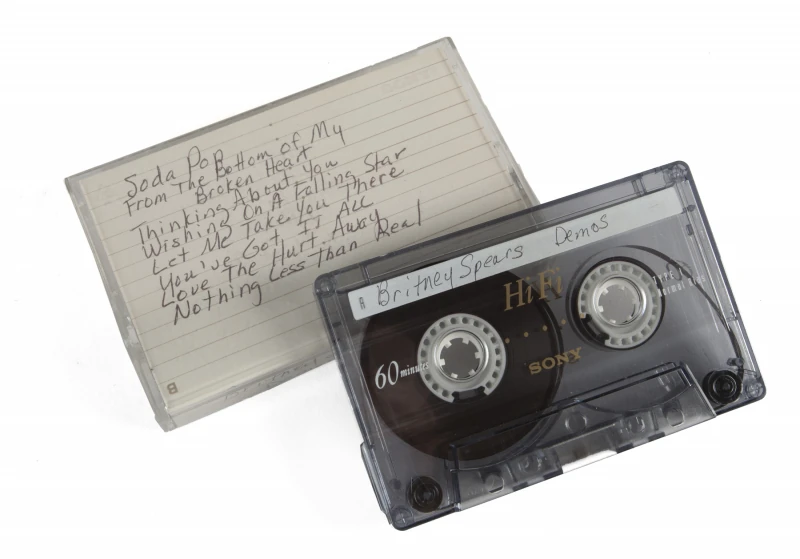 Soda Pop
From The Bottom of My
Broken Heart
Thinking About You
Wishing On A Falling Star
Let Me Take You There
You've Got It All
Love The Hurt Away
Nothing Less Than Real
B
A Britney Spears Demos
HiFi
60 minutes
SONY